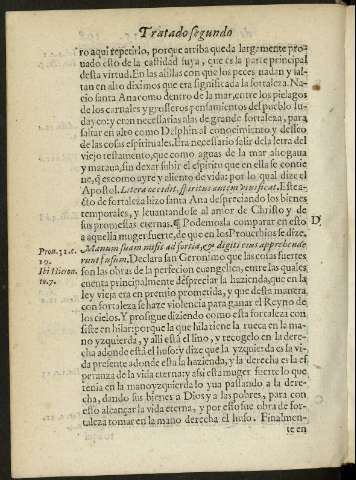 Tratado segundo
ro aqui repetirlo, porque arriba queda largamente pro-
uado esto de la castidad suya, que es la parte principal
desta virtud. En las asillas con que los peces nadan y sal-
tan en alto diximos que era significada la fortaleza. Na-
cio santa Ana como dentro de la mar, entre los pielagos
de los carnales y grosseros pensamientos del pueblo Iu-
dayco: y eran necessarias alas de grande fortaleza, para
saltar en alto como Delphin al conocimiento y desseo
de las cosas espirituales. Era necessario salir de la letra del
viejo testamento, que como aguas de la mar ahogaua
y mataua, sin dexar subir el espiritu que en ella se contie
ne, q̃ es como ayre y aliento de vida: por lo qual dize el
Apostol. Litera occidit, spiritus autem viuificat. Este a-
cto de fortaleza hizo santa Ana despreciando los bienes
temporales, y leuantandose al amor de Christo y de
sus promessas eternas. ¶ Podemosla comparar en esto
D
a aquella muger fuerte, de que en los Prouerbios se dize.
Manum suam misit ad fortia, & digiti eius apprehende
Prou. 31. c.
19.
runt fusum. Declara san Geronimo que las cosas fuertes
Ibi Hieron.
to. 7.
son las obras de la perfecion euangelica, entre las quales
cuenta principalmente despreciar la hazienda, que en la
ley vieja era en premio prometida, y que desta manera
con fortaleza se haze violencia para ganar el Reyno de
los cielos. Y prosigue diziendo como esta fortaleza con
siste en hilar: porque la que hila tiene la rueca en la ma-
no yzquierda, y alli està el lino, y recogelo en la dere-
cha adonde està el huso: y dize que la yzquierda es la vi-
da presente adonde està la hazienda, y la derecha es la es
peranza de la vida eterna: y assi esta muger fuerte lo que
tenia en la mano yzquierda lo yua passando a la dere-
cha, dando sus bienes a Dios y a las pobres, para con
esto alcançar la vida eterna, y por esso fue obra de for-
taleza tomar en la mano derecha el huso. Finalmen-
te en